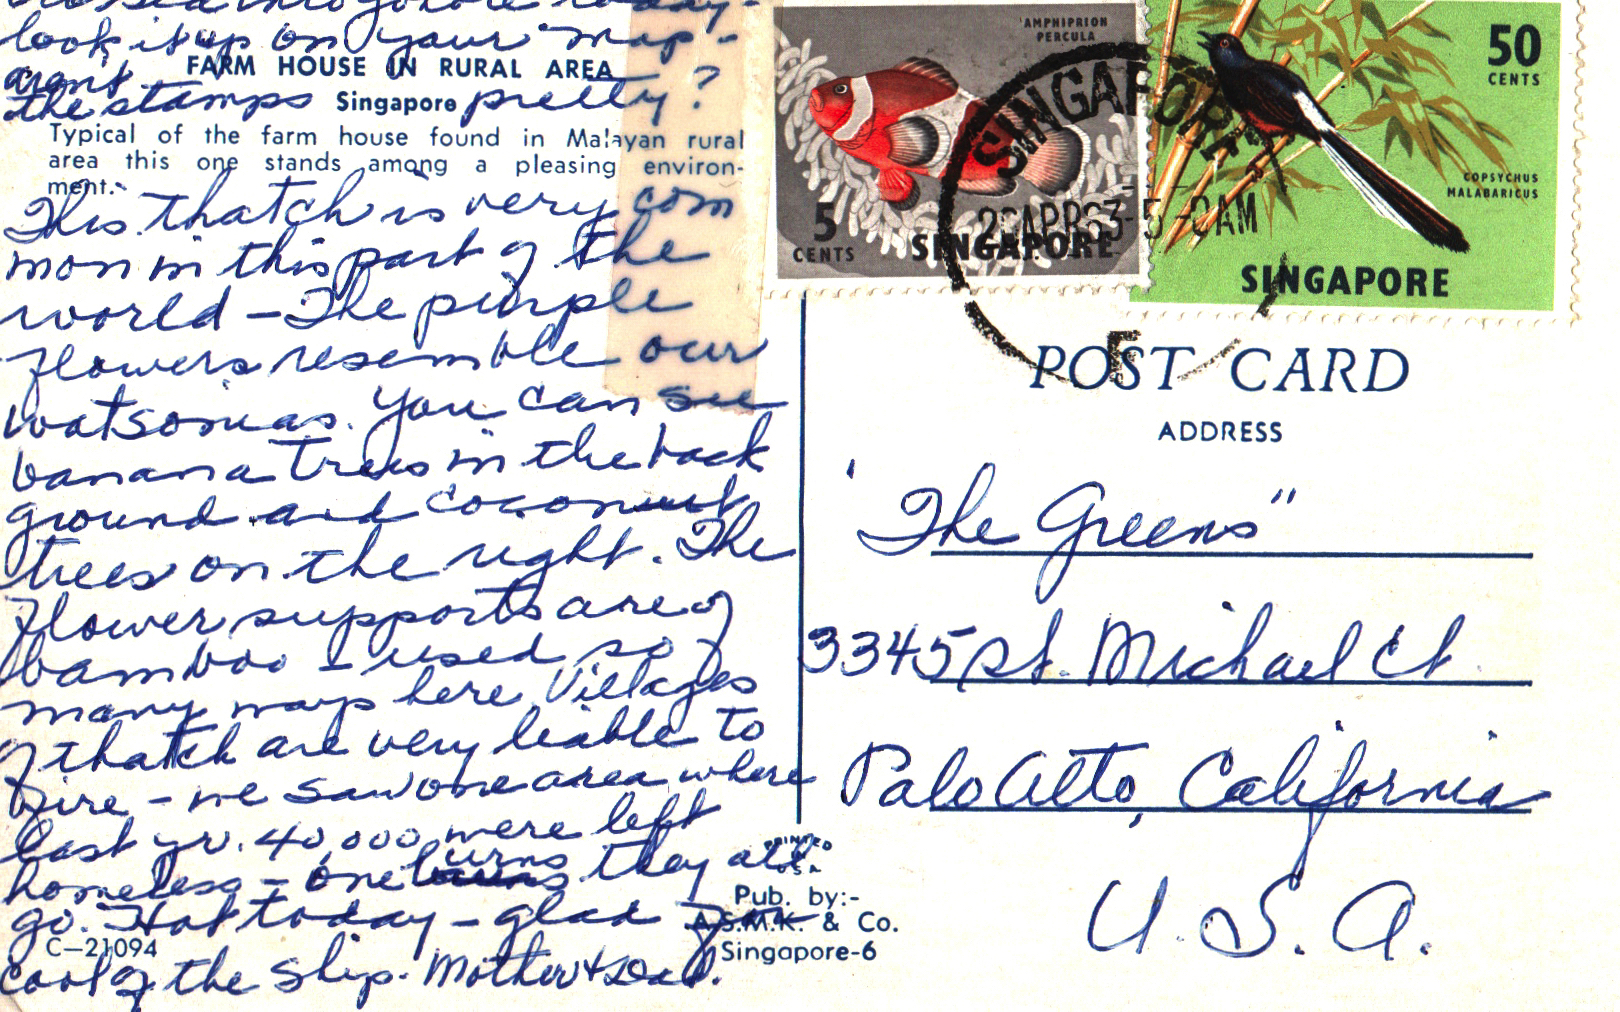 look it up on your map -
arent
FARM HOUSE IN RURAL AREA
the stamps Singapore pretty?
Typical of the farm house found in Malayan rural
area this one stands among a pleasing environ-
ment.
This thatch is very com
mon in this part of the
world - The purple
flowers resemble our
watsonias. You can see
banana trees in the back
ground and coconut
trees on the right. The
flower supports are of
bamboo I used so
many ways here. Villages
of thatch are very liable to
fire - we saw one area where
last yr. 40,000 were left
homeless - one burns they all
go. Hot today - glad for
cool of the ship. Mother & Dad.
C-21094
PRINTED
Pub. by:-
A.S.M.K. & Co.
Singapore-6
AMPHIPRION
PERCULA
5
CENTS
SINGAPORE
50
CENTS
COPSYCHUS
MALABARICUS
SINGAPORE
SINGAPORE
POST CARD
ADDRESS
"The Greens"
3345 St. Michael Ct.
Palo Alto, California
U.S.A.